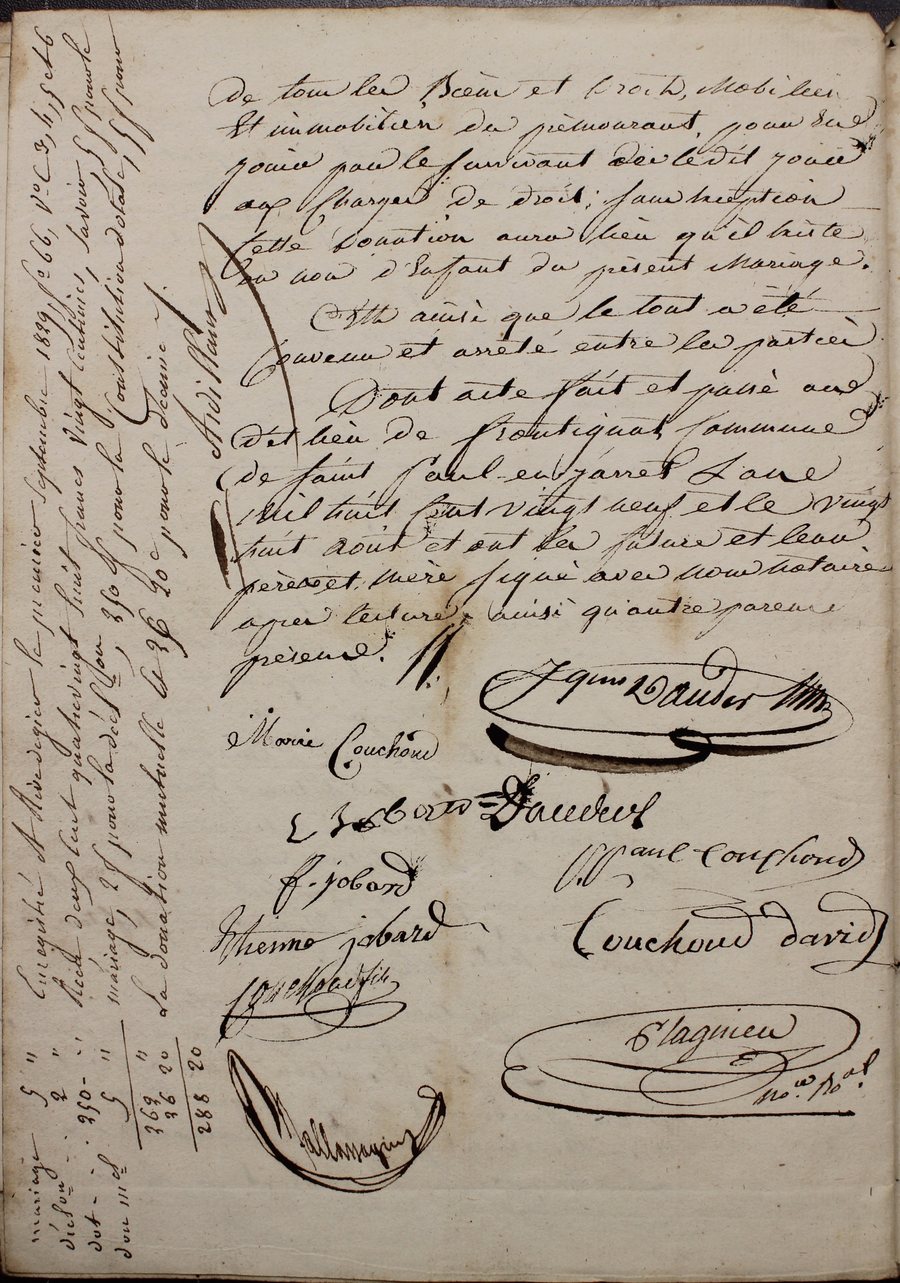 de tous les Biens et droits, Mobiliers
Et immobiliers du prémourant, pour Etre
joui par le survivant dès le dit joui
aux Charges de droit; sans exception
Cette Donation aura lieu qu'il Existe
ou non d'Enfant du présent Mariage.
C'est ainsi que le tout a été
Convenu et arrêté entre les parties
Dont acte fait et passé au
dit lieu de frontignat Commune
de Saint Paul-en-jarret L'an
Mil huit Cent vingt neuf et le vingt
huit Août et ont les future et leurs
pères et mère signé avec nous notaire
après lecture, ainsi qu'autre parens
présens.
Marie Couchoud
f. jobard
Paul Couchoud
Etienne jobard
Couchoud david
Couchoud fils
Plagnieu
No.re Ro.al
Enregistré à Rivedegier le premier septembre 1829, f° 66, V° C. 3, 4, 5 et 6
Reçu deux Cent quatrevingt huit francs Vingt Centimes, savoir 5 f pour le
mariage, 2 f pour la décl.on, 250 f pour la Constitution dotale, 5 f pour
La donation mutuelle et 26 f 20 c pour le Décime
mariage 5 "
décl.on - 2 "
dot - - 250 - "
don m.el 5 "
262 "
26 20
288 20